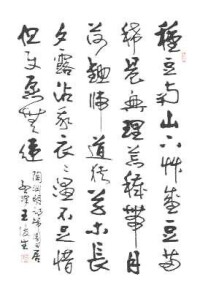 種豆南山下草盛豆苗
稀晨興理荒穢帶月
荷鋤歸道狹草木長
夕露沾我衣衣沾不足惜
但使願無違
陶淵明詩歸園田居
王